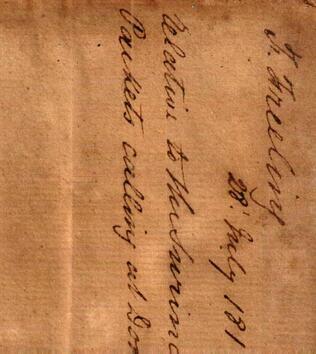 F. Freeling
28. July 181
Relative to the Surina
Packets calling at Dom